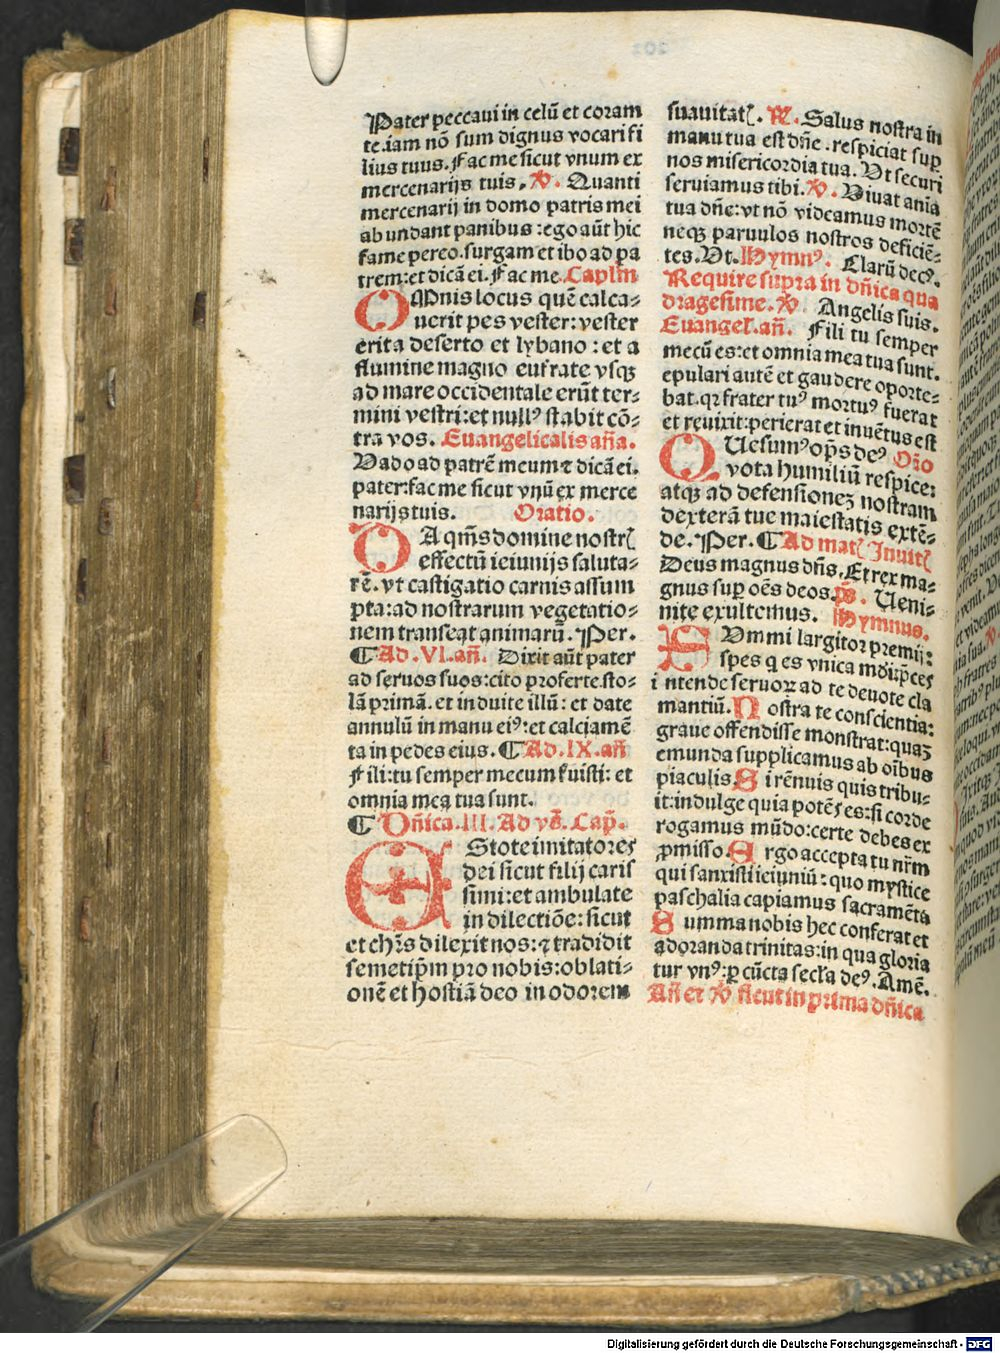 Pater peccaui in celū et coram
te.iam nō sum dignus vocari fi
lius tuus. Fac me sicut vnum ex
mercenarijs tuis. ꝟ. Quanti
mercenarij in domo patris mei
abundant panibus : ego aūt hic
fame pereo. surgam et ibo ad pa
trem: et dicā ei. Fac me. Caplm
OMnis locus quē calca-
uerit pes vester: vester
erit a deserto et lybano : et a
flumine magno eufrate vsqꝫ
ad mare occidentale erūt ter-
mini vestri: et nullꝰ stabit cō-
tra vos. Euangelicalis aña.
Vado ad patrē meum ⁊ dicā ei.
pater: fac me sicut vnū ex merce
narijs tuis. Oratio.
DA qm̄s domine nostrꝭ
effectū ieiunijs saluta-
rē. vt castigatio carnis assum
pta: ad nostrarum vegetatio-
nem transeat animarū. Per.
¶ Ad .VI. añ. Dixit aūt pater
ad seruos suos: cito proferte sto-
lā primā. et induite illū: et date
annulū in manu eiꝰ: et calciamē
ta in pedes eius. ¶ Ad .IX. añ
Fili: tu semper mecum fuisti: et
omnia mea tua sunt.
¶ Dñica .III. Ad vꝭ. Cap̄.
EStote imitatores
dei sicut filij caris
simi: et ambulate
in dilectiōe: sicut
et chr̄s dilexit nos: ⁊ tradidit
semetip̄m pro nobis: oblati-
onē et hostiā deo in odorem
suauitatꝭ. ℟. Salus nostra in
manu tua est dñe . respiciat suꝑ
nos misericordia tua. Vt securi
seruiamus tibi. ꝟ. Viuat aniā
tua dñe: vt nō videamus mortē
neqꝫ paruulos nostros deficiē-
tes. Vt. Hymnꝰ. Clarū decꝰ.
Require supra in dñica qua
dragesime. ꝟ Angelis suis.
Euangel. añ. Fili tu semper
mecū es: et omnia mea tua sunt.
epulari autē et gaudere oporte-
bat. qꝛ frater tuꝰ mortuꝰ fuerat
et reuixit: perierat et inuētus est
QUesumꝰ op̄s deꝰ Orō
vota humiliū respice:
atqꝫ ad defensioneꝫ nostram
dexterā tue maiestatis extē-
de. Per. ¶ Ad matꝭ Inuitꝭ
Deus magnus dñs. Et rex ma-
gnus suꝑ oēs deos. p̄s. Ueni-
nite exultemus. Hymnus.
SVmmi largitor premij:
spes q̄ es vnica
intende seruoꝝ ad te deuote cla
mantiū. Nostra te conscientia:
graue offendisse monstrat: quaꝫ
emunda supplicamus ab oībus
piaculis. Si rēnuis quis tribu-
it: indulge quia potēs es: si corde
rogamus mūdo: certe debes ex
ꝓmisso. Ergo accepta tu nr̄m
qui sanxisti ieiuniū : quo mystice
paschalia capiamus sacramēta
Summa nobis hec conferat et
adoranda trinitas: in qua gloria
tur vnꝰ: ꝑ cūcta secl̄a deꝰ. Amē.
Añ et ꝟ sicut in prima dñica
Digitalisierung gefördert durch die Deutsche Forschungsgemeinschaft - DFG